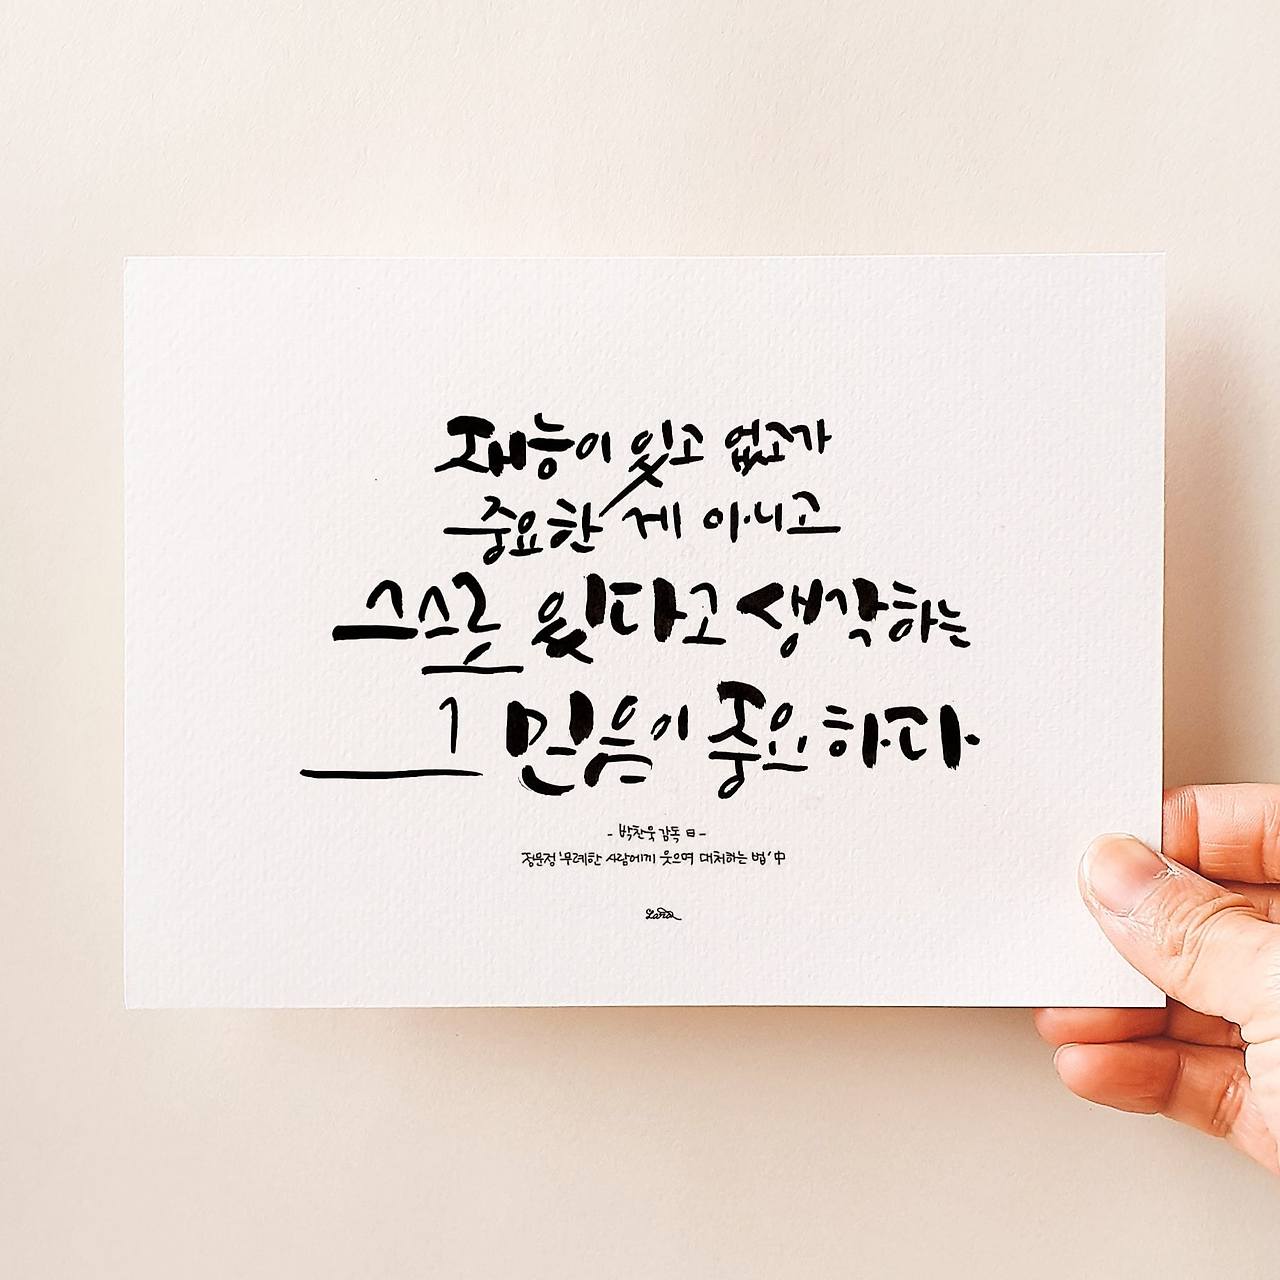 재능이 있고 없고가
중요한 게 아니고
스스로 있다고 생각하는
그 믿음이 중요하다.
- 박찬욱 감독 曰 -
정문정 '무례한 사람에게 웃으며 대처하는 법' 中
Lara